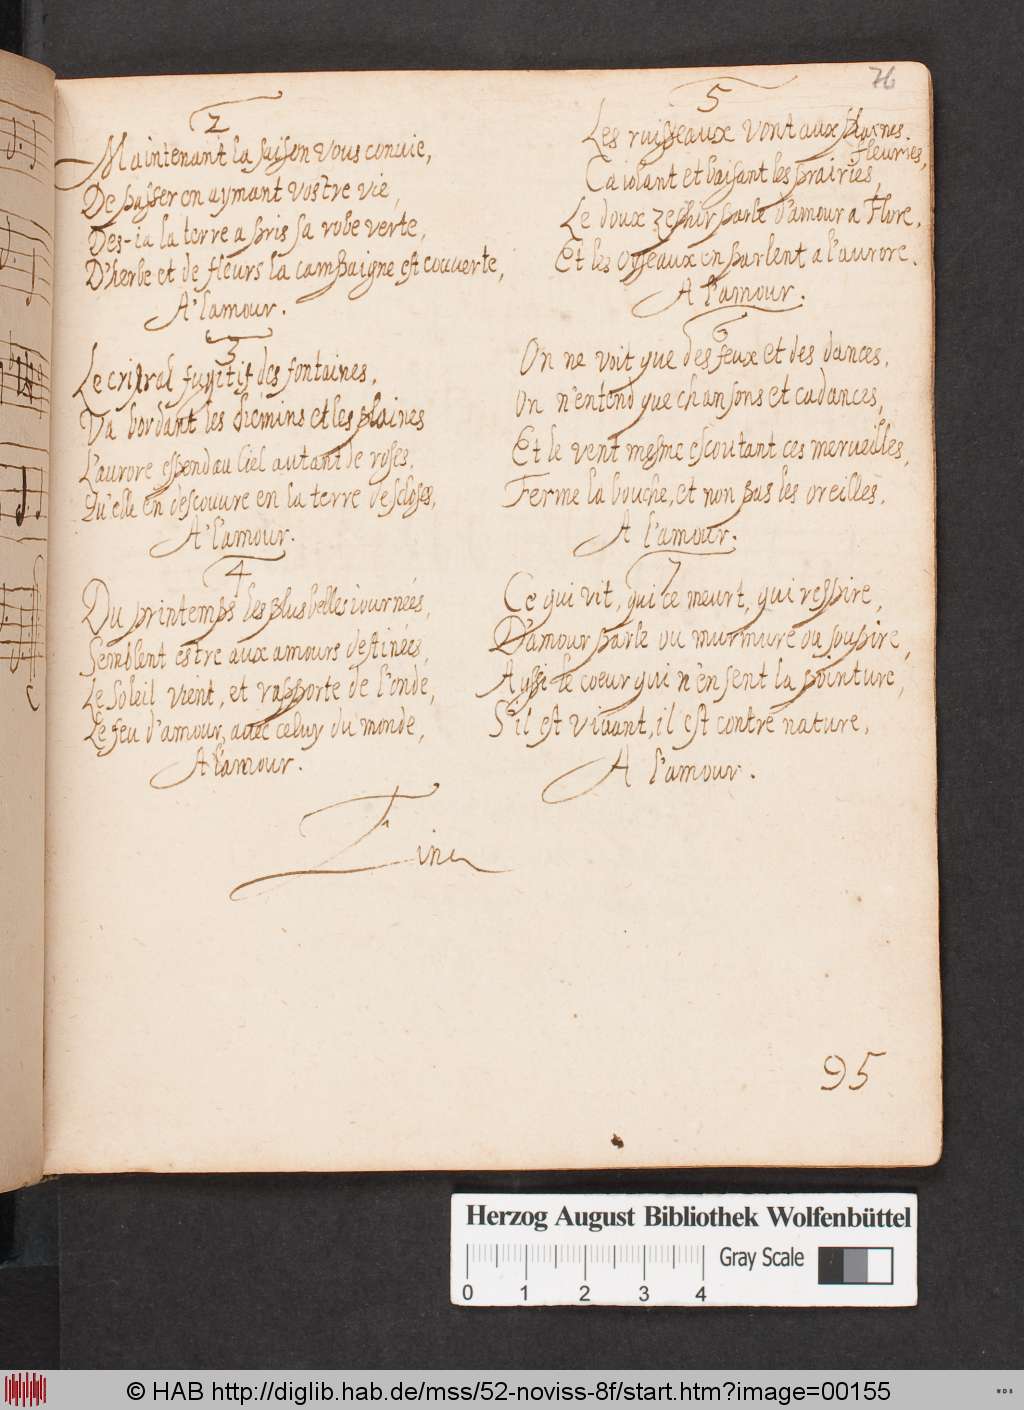 76
2
Maintenant la saison vous convie,
De passer en aymant vostre vie,
Des-ia la terre a pris sa robe verte,
D'herbe et de fleurs la campaigne est couuerte,
A l'amour.
3
Le cristal fugitif des fontaines,
Va bordant les chemins et les plaines
L'aurore espend au Ciel autant de roses,
Qu'elle en descouvre en la terre descloses,
A l'amour.
4
Du printemps les plus belles iournées,
Semblent estre aux amours destinées,
Le soleil vient, et rapporte de l'onde,
Le feu d'amour, auec celuy du monde,
A l'amour.
5
Les ruisseaux vont aux plaines
fleuries,
Caiolant et baisant les prairies,
Le doux zephir parle d'amour a Flore,
Et les oyseaux en parlent a l'aurore.
A l'amour.
6
On ne voit que des feux et des dances,
On n'entend que chansons et cadances,
Et le vent mesme escoutant ces merueilles,
Ferme la bouche, et non pas les oreilles.
A l'amour.
7
Ce qui vit, qui ce meurt, qui respire,
D'amour parle ou murmure ou soupire,
Aussi le coeur qui n'en sent la pointure,
S'il est viuant, il est contre nature.
A l'amour.
Fine
95
Herzog August Bibliothek Wolfenbüttel
Gray Scale
0 1 2 3 4
© HAB http://diglib.hab.de/mss/52-noviss-8f/start.htm?image=00155